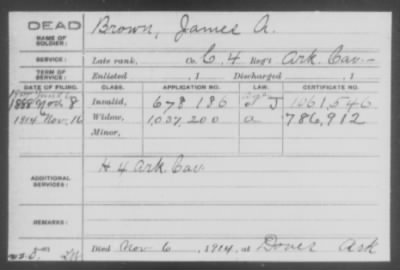 DEAD
NAME OF SOLDIER: Brown, James A.
SERVICE: Late rank, Co. C, 4 Reg't Ark. Cav.
TERM OF SERVICE: Enlisted , 1 Discharged , 1
DATE OF FILING. CLASS. APPLICATION NO. LAW. CERTIFICATE NO.
1888 Nov. 8 Invalid, 678 186 J 1061,546
1914 Nov. 16 Widow, 1,037,200 a 786,912
Minor,
ADDITIONAL SERVICES: H 4 Ark. Cav.
REMARKS:
Died Nov 6, 1914, at Dover Ark